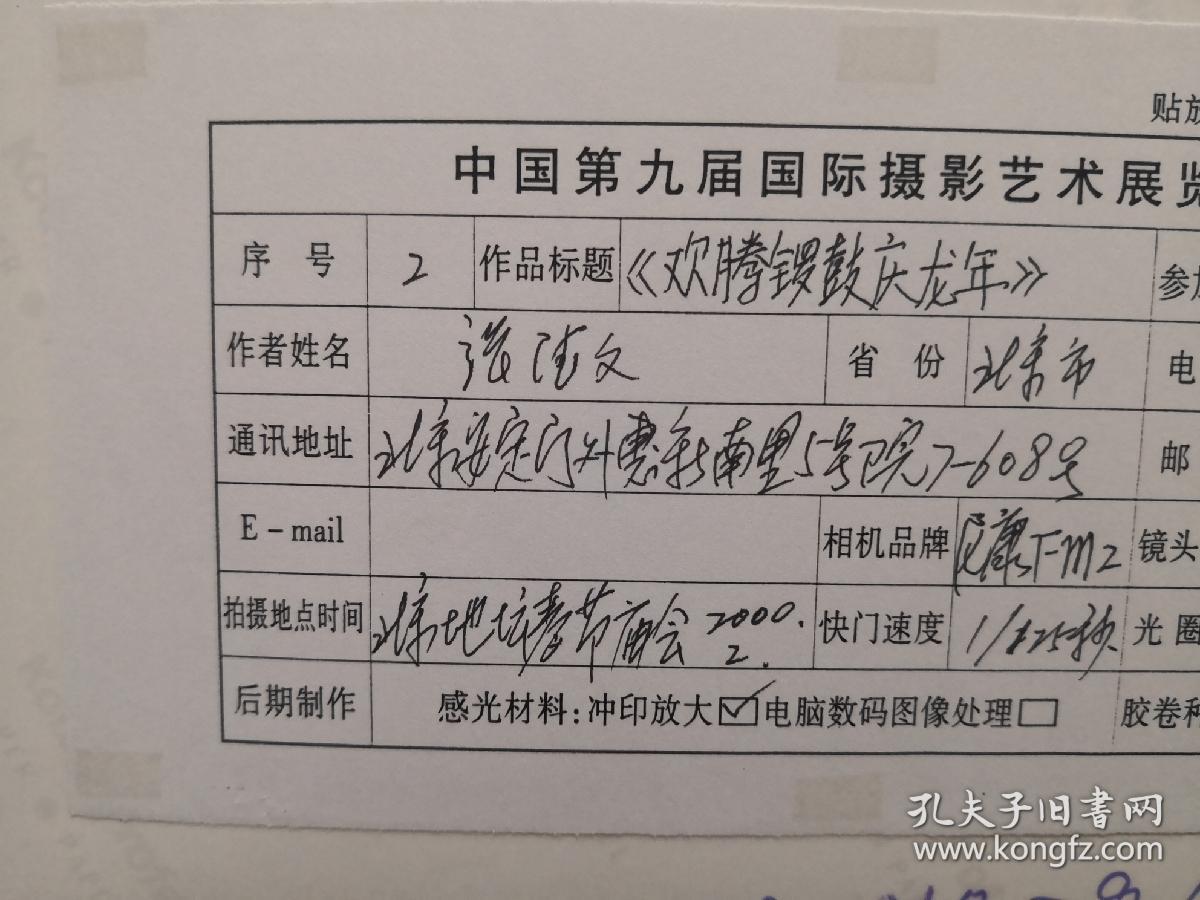 贴放
中国第九届国际摄影艺术展览
序 号 2 作品标题 《欢腾锣鼓庆龙年》 参加
作者姓名 文 省 份 北京市 电
通讯地址 北京安定门外惠新南里5号院7-608号 邮
E-mail 相机品牌 尼康FM2 镜头
拍摄地点时间 北京地坛春节庙会 2000.2. 快门速度 1/125秒 光圈
后期制作 感光材料:冲印放大☑电脑数码图像处理□ 胶卷种
孔夫子旧书网
www.kongfz.com